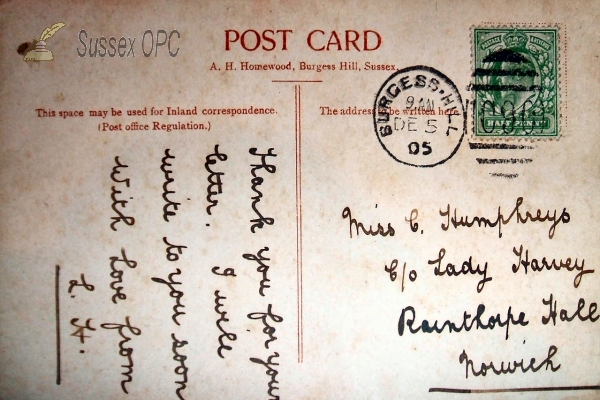 Sussex OPC
POST CARD
A. H. Homewood, Burgess Hill, Sussex.
This space may be used for Inland correspondence.
(Post office Regulation.)
The address to be written here
BURGESS-HILL
9 AM
DE 5
05
HALFPENNY
Thank you for your
letter. I will
write to you soon
With Love from
L. H.
Miss C. Humphreys
C/o Lady Harvey
Rainthorpe Hall
Norwich